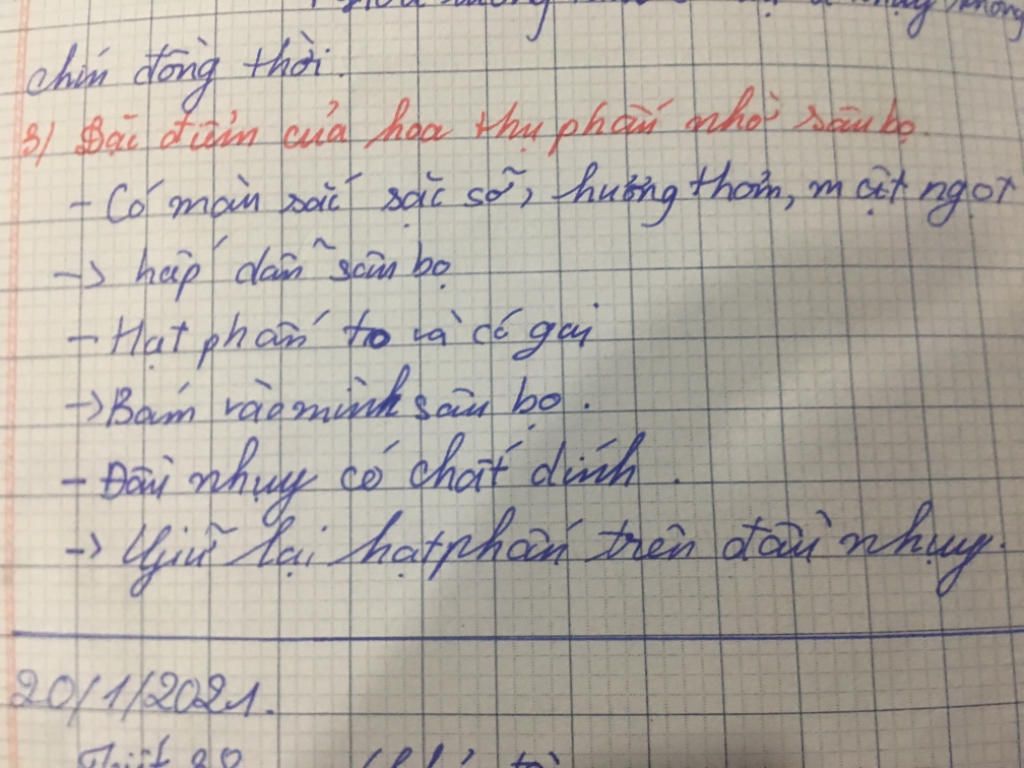 chín đồng thời.
3/ Đặc điểm của hoa thụ phấn nhờ sâu bọ.
- Có màu sắc sặc sỡ, hương thơm, mật ngọt
-> hấp dẫn sâu bọ
- Hạt phấn to và có gai
-> Bám vào mình sâu bọ.
- Đầu nhụy có chất dính.
-> Giữ lại hạt phấn trên đầu nhụy.
20/1/2021.